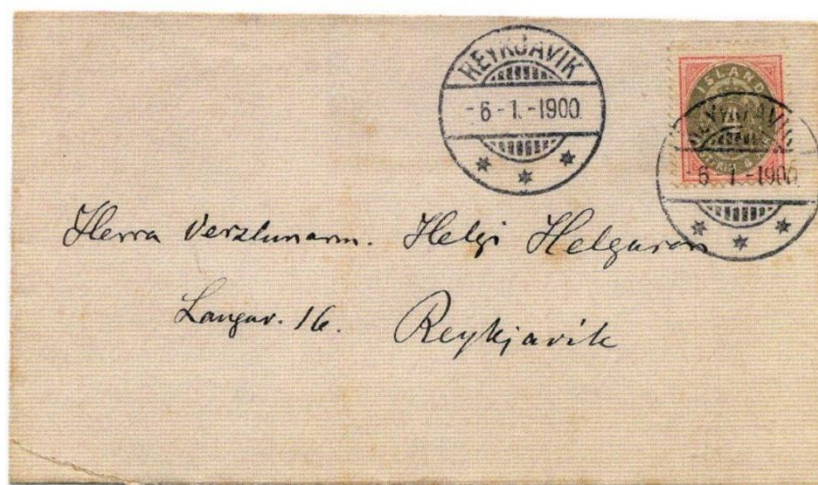 REYKJAVIK
-6-1.-1900
ISLAND
4
REYKJAVIK
-6-1.-1900
Herra Verzlunarm. Helgi Helgason
Laugav. 16. Reykjavík